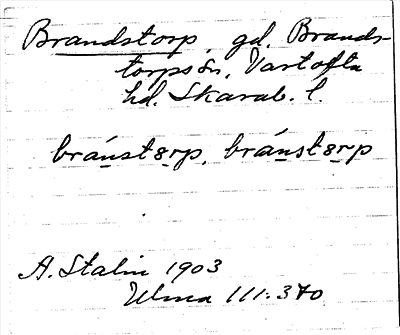 Brandstorp, gd. Brands-
torps sn, Vartofta
hd. Skarab. l.
bránst8rp, bránst8rp
A. Stalin 1903
Ulma 111:370